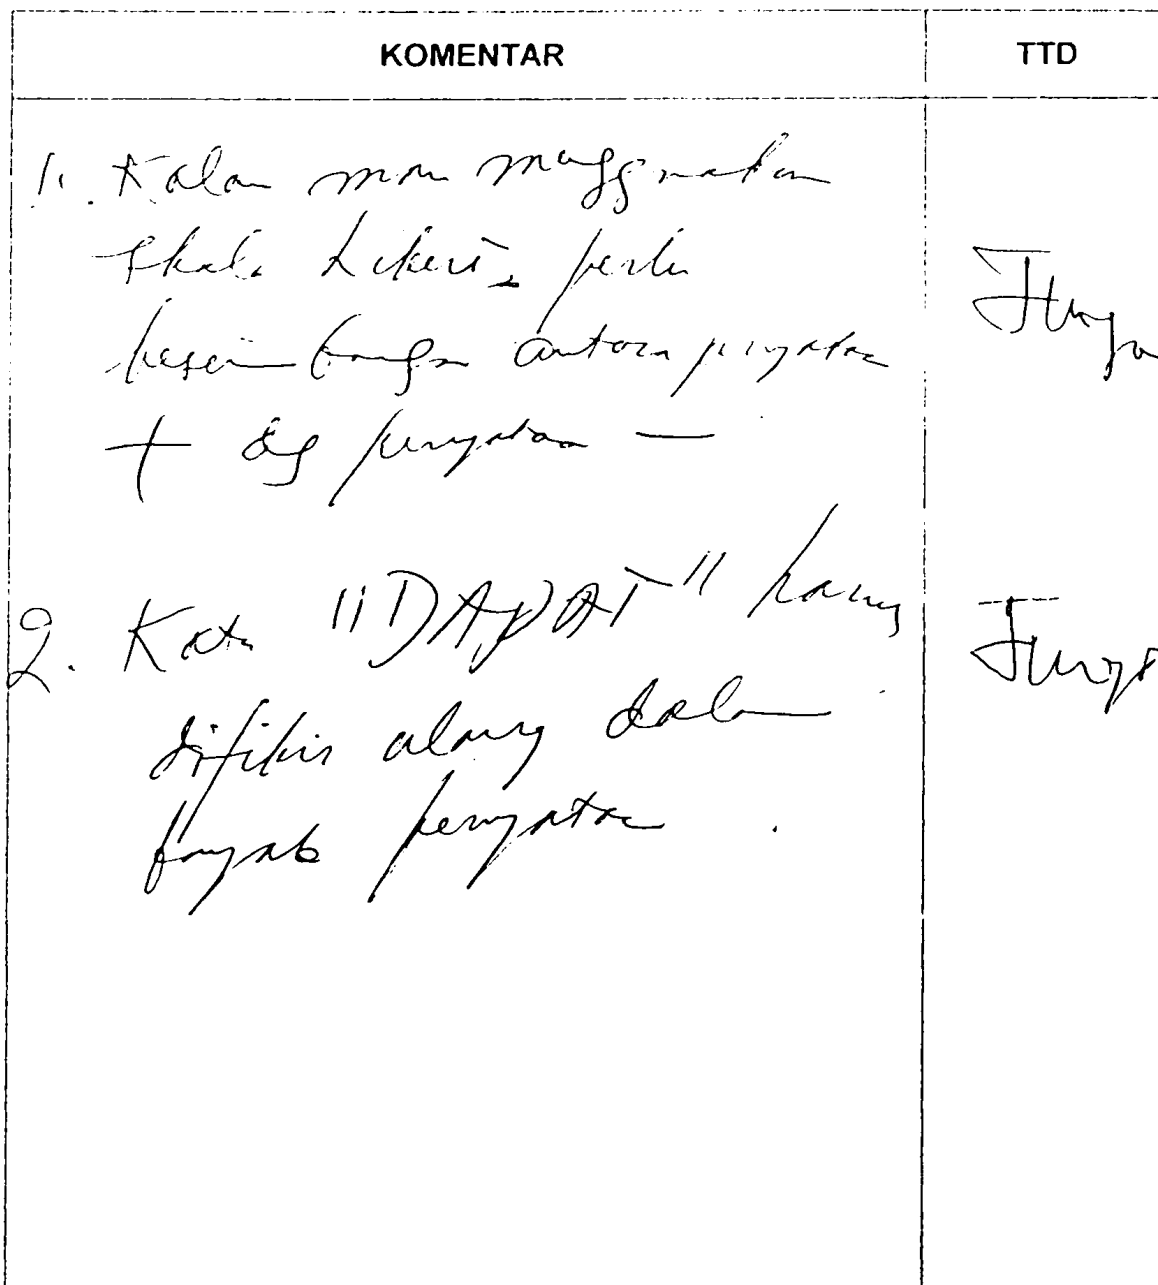 KOMENTAR TTD
1. Kalau mau menggunakan
skala Likert, perlu
keseimbangan antara pernyataan
+ dg pernyataan —
2. Kata "DAPAT" harus
difikir ulang dalam
banyak pernyataan.